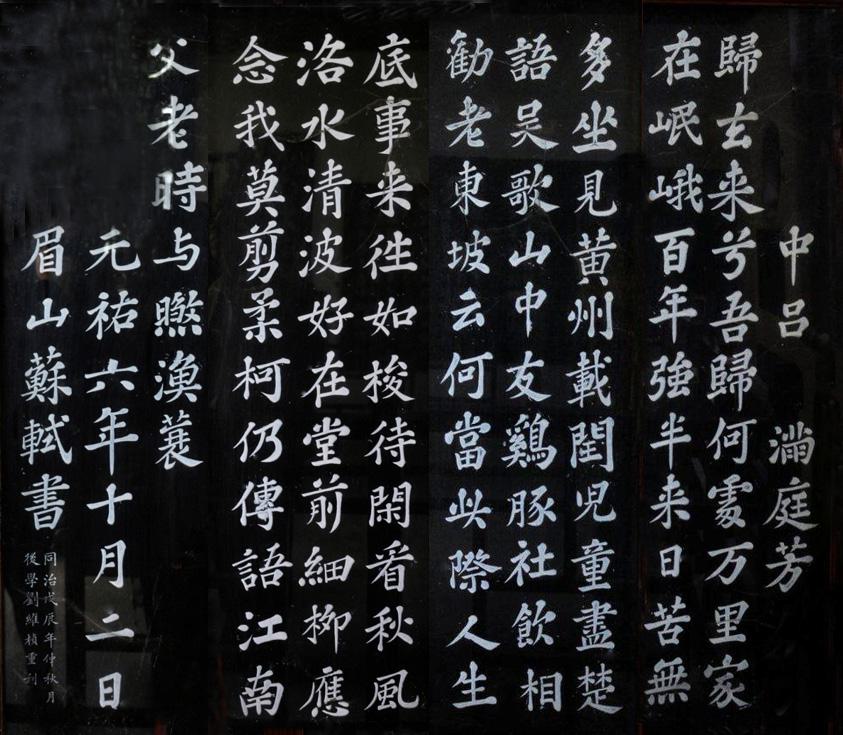 中呂　滿庭芳
歸去来兮吾歸何處万里家
在岷峨百年強半来日苦無
多坐見黄州載閏児童盡楚
語吴歌山中友鷄豚社飲相
勸老東坡云何當此際人生
底事来往如梭待閑看秋風
洛水清波好在堂前細柳應
念我莫剪柔柯仍傳語江南
父老時与漁蓑
元祐六年十月二日
眉山蘇軾書
同治戊辰年仲秋月
後學劉維楨重刊